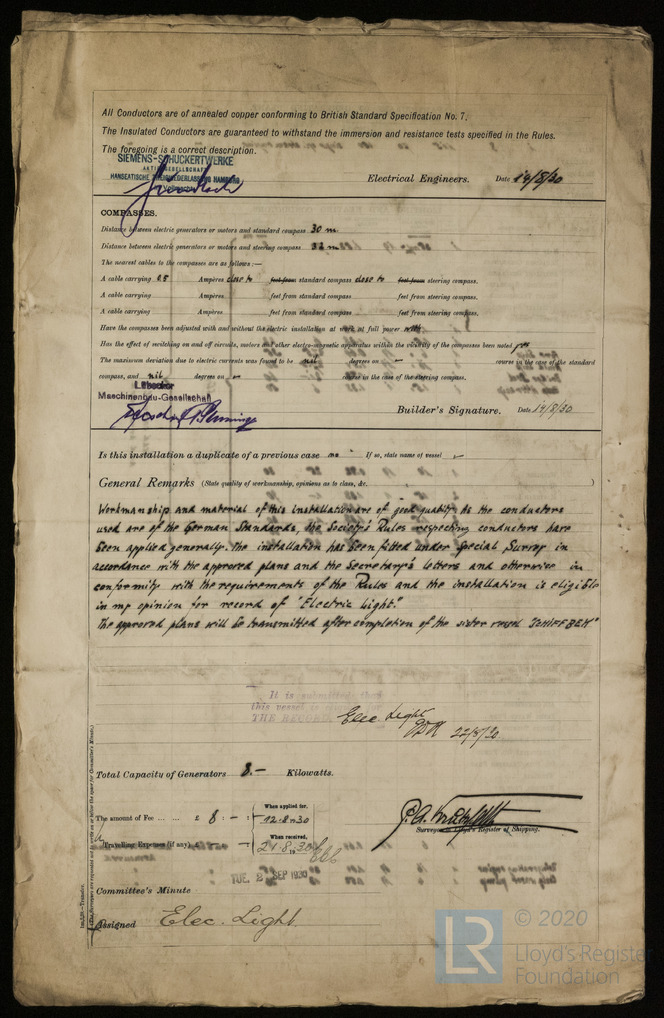 All Conductors are of annealed copper conforming to British Standard Specification No. 7.
The Insulated Conductors are guaranteed to withstand the immersion and resistance tests specified in the Rules.
The foregoing is a correct description.
SIEMENS-SCHUCKERTWERKE
AKTIENGESELLSCHAFT
HANSEATISCHE HAMBURG
Electrical Engineers. Date 14/8/30
COMPASSES.
Distance between electric generators or motors and standard compass 30 m.
Distance between electric generators or motors and steering compass m
The nearest cables to the compasses are as follows:—
A cable carrying 0.5 Ampères close to feet from standard compass close to feet from steering compass.
A cable carrying Ampères feet from standard compass feet from steering compass.
A cable carrying Ampères feet from standard compass feet from steering compass.
Have the compasses been adjusted with and without the electric installation at work at full power with
Has the effect of switching on and off circuits, motors and other electro-magnetic apparatus within the vicinity of the compasses been noted yes
The maximum deviation due to electric currents was found to be nil degrees on — course in the case of the standard
compass, and nil degrees on — course in the case of the steering compass.
Lübecker
Maschinenbau-Gesellschaft
Builder's Signature. Date 14/8/30
Is this installation a duplicate of a previous case no If so, state name of vessel —
General Remarks (State quality of workmanship, opinions as to class, &c.)
Workmanship and material of this installation are of good quality. As the conductors
used are of the German Standards, the Society's Rules respecting conductors have
been applied generally. The installation has been fitted under Special Survey in
accordance with the approved plans and the Secretary's letters and otherwise in
conformity with the requirements of the Rules and the installation is eligible
in my opinion for record of "Electric Light."
The approved plans will be transmitted after completion of the sister vessel "SCHIFFBEK"
It is submitted that
this vessel is eligible for
THE RECORD. Elec Light
22/8/30
Total Capacity of Generators 8.— Kilowatts.
The amount of Fee ... ... £ 8 : — :
When applied for,
12.8.30
Travelling Expenses (if any) £
When received,
21.8.30
Surveyor to Lloyd's Register of Shipping.
TUE. 2 SEP 1930
Committee's Minute
Assigned Elec. Light
© 2020
LR
Lloyd's Register
Foundation